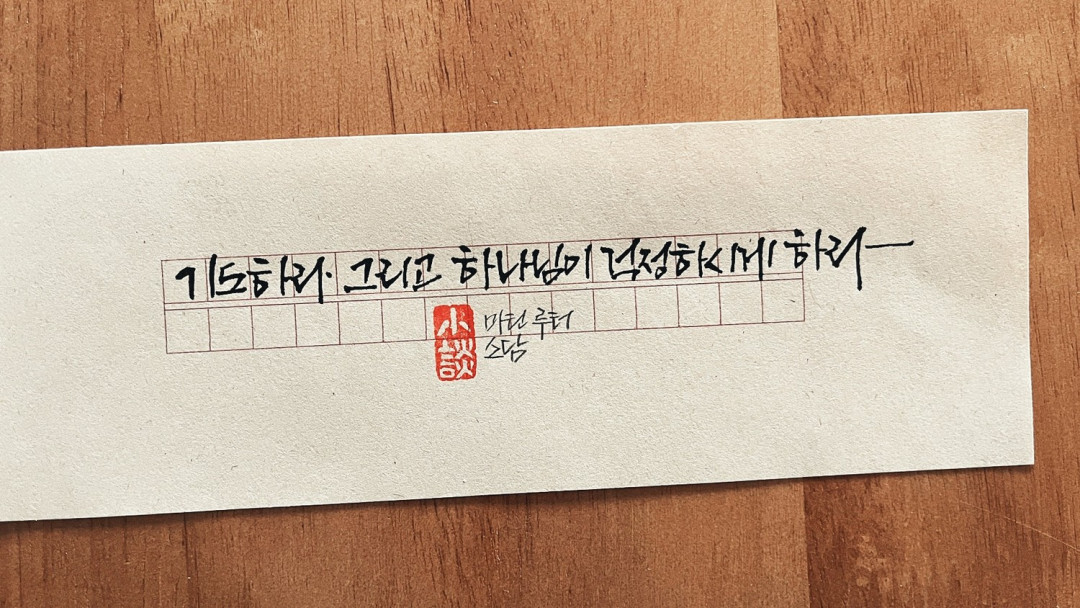 기도하라. 그리고 하나님이 걱정하시게 하라
小談
마틴 루터
소담